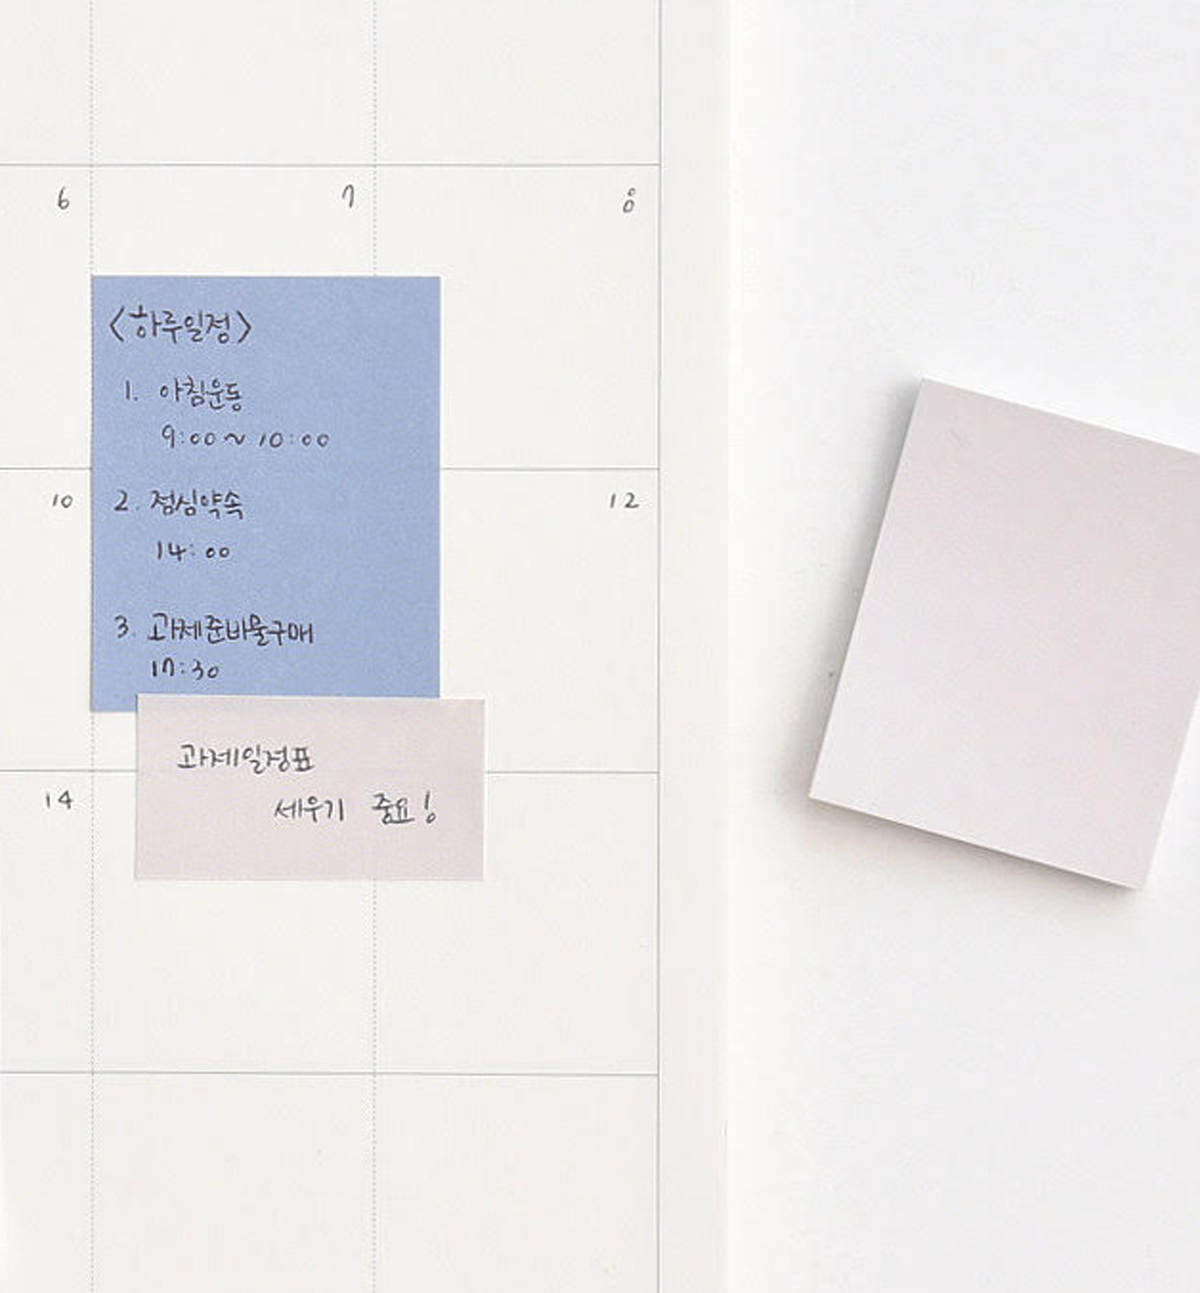 6 7 8
<하루일정>
1. 아침운동
9:00~10:00
10 12
2. 점심약속
14:00
3. 과제준비물구매
17:30
과제일정표
14
세우기 중요!